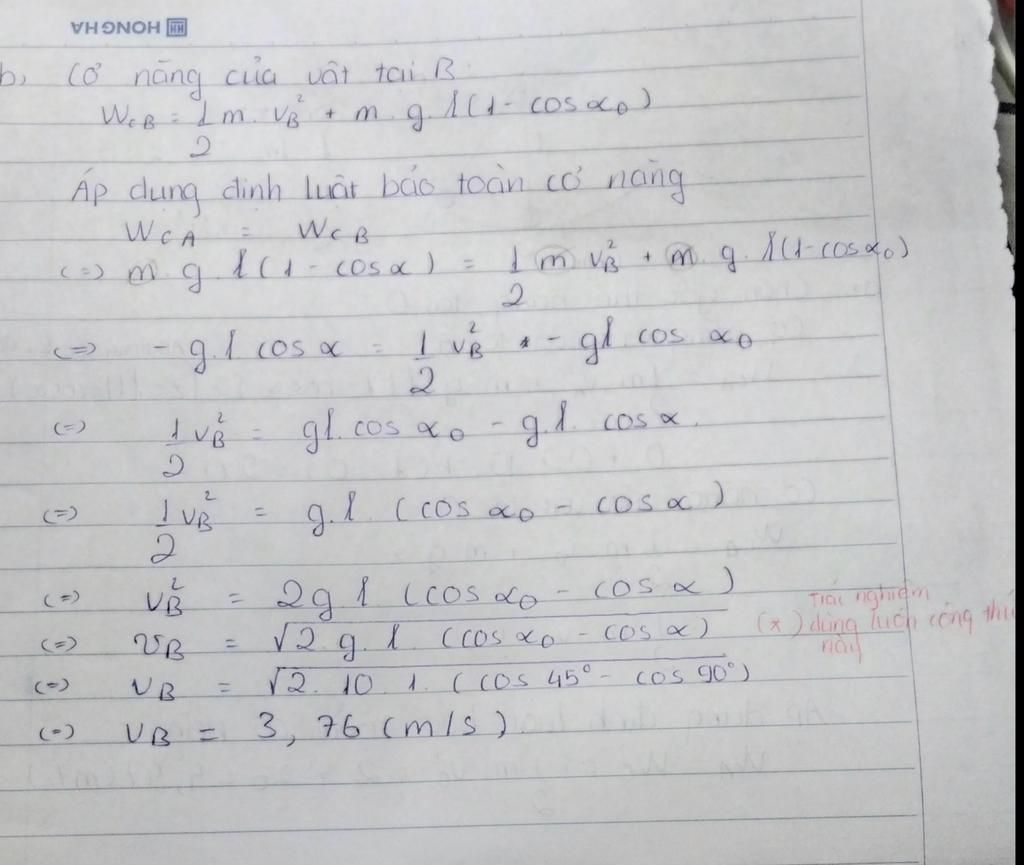 HONG HA
b, Cơ năng của vật tại B
W_cB = 1/2 m. v_B² + m. g. l(1 - cos α₀)
Áp dụng định luật bảo toàn cơ năng
W_cA = W_cB
(=) m. g. l(1 - cos α) = 1/2 m v_B² + m. g. l(1 - cos α₀)
<=> - g. l cos α = 1/2 v_B² - gl cos α₀
(=) 1/2 v_B² = gl. cos α₀ - g. l. cos α.
(=) 1/2 v_B² = g. l (cos α₀ - cos α)
(=) v_B² = 2g l (cos α₀ - cos α)
(=) v_B = √2. g. l. (cos α₀ - cos α) (*) Trắc nghiệm dùng luôn công thức này
(=) v_B = √2. 10. 1. (cos 45° - cos 90°)
(=) v_B = 3,76 (m/s)